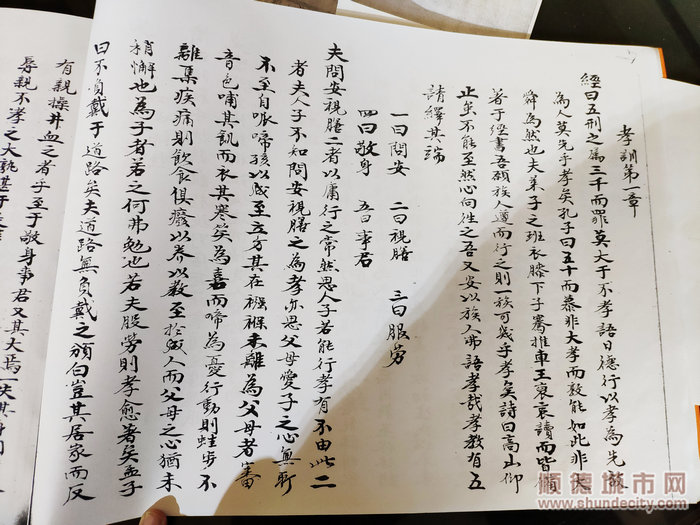 孝訓第一章
經曰五刑之屬三千而罪莫大于不孝語曰德行以孝為先
為人莫先乎孝矣孔子曰五十而慕非大孝而孰能如此非夫
舜為然也夫萊子之班衣膝下子騫推車王裒哀讀而皆備
著于經書吾願族人遵而行之則一族可幾于孝矣詩曰高山仰
止虽不能至然心向往之吾又安以族人弗語孝哉孝教有五
請繹其端
一曰問安 二曰視膳 三曰服勞
四曰敬身 五曰事君
夫問安視膳二者以庸行之常然思人子若能行孝有不由此二
者夫人子不知問安視膳之為孝亦思父母愛子之心無所
不至自呱啼孩以咸至立方其在襁褓未離為父母者審
音色哺其飢而衣其寒笑為嘉而啼為憂行動則蛙步不
離集疾痛則飲食俱廢以养以教至於成人而父母之心猶未
稍懈也為子者若之何弗勉也若夫股勞則孝愈著矣孟子
曰不負戴于道路矣夫道路無負戴之頒白豈其居家而反
有親操井血之者乎至于敬身事君又其大焉一失其身
辱親不孝之大孰甚于
顺德城市网
www.shundecity.com